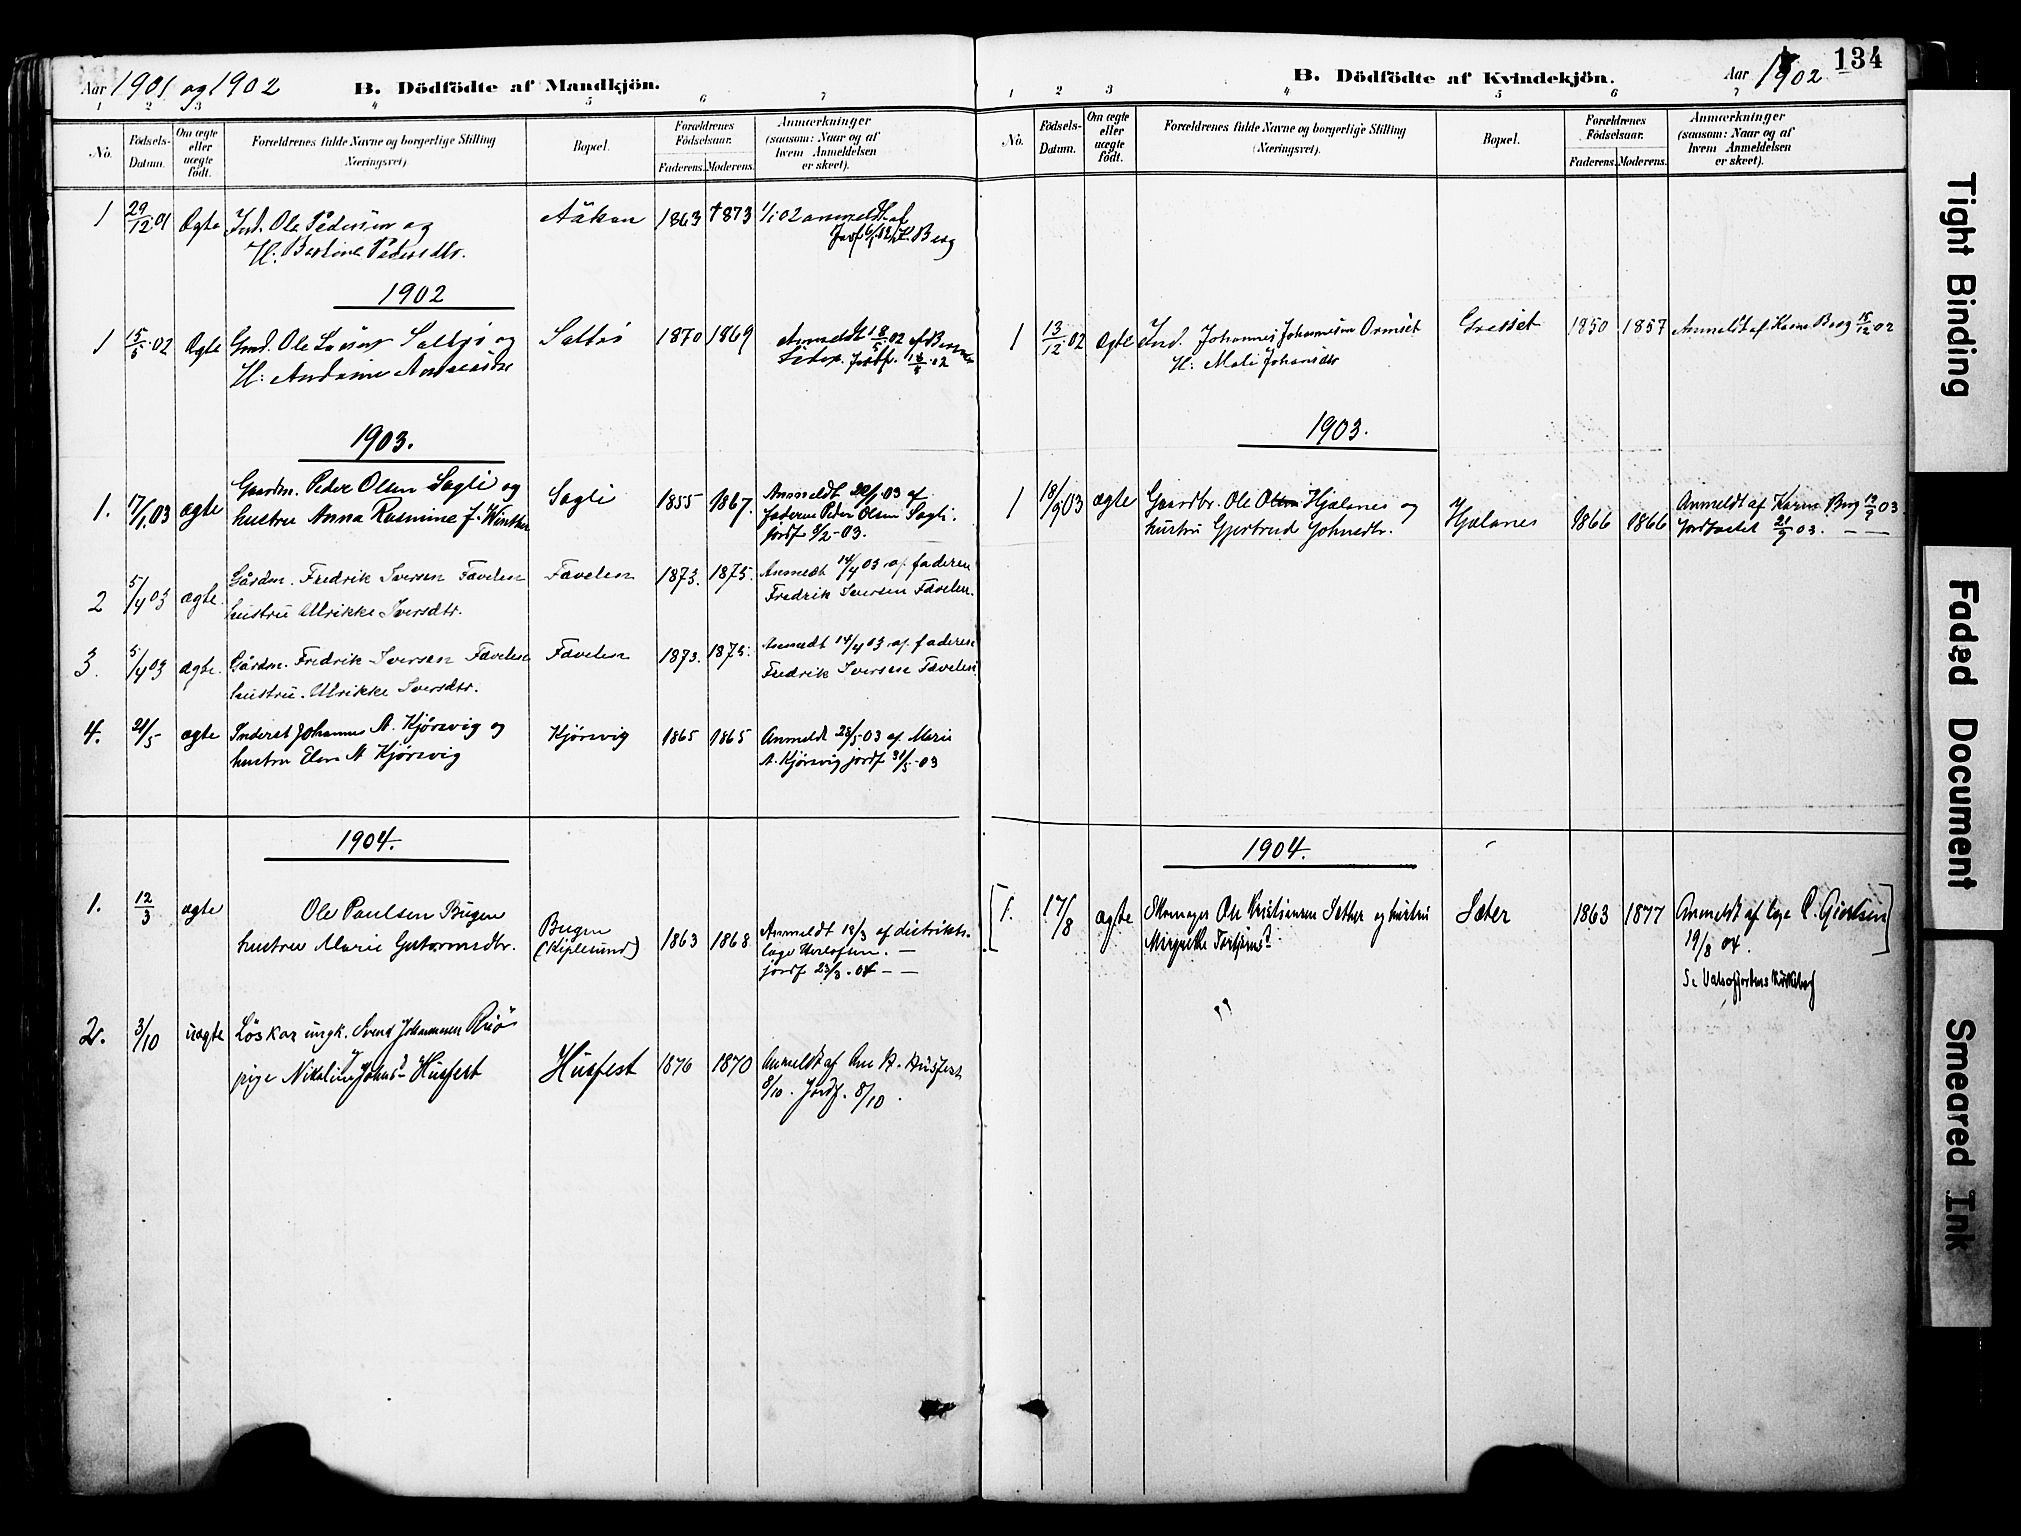 Aar 1901 og 1902
B. Dödfödte af Mandkjön.
1 2 3 4 5 6 7
No.
Födsels-Datum.
Om ægte eller uægte födt.
Forældrenes fulde Navne og borgerlige Stilling (Næringsvei).
Bopæl.
Forældrenes Födselsaar.
Faderens. Moderens.
Anmærkninger (saasom: Naar og af hvem Anmeldelsen er skeet).
1 29/12 01 Ægte Ind. Ole Pedersen og 1863 1873 1/1 02 anmeldt af
H: Pedersdtr. Berg
1902
1 15/5 02 Ægte Ole Saltøs og Saltøs 1870 1869 Anmeldt 18/5 02 af
H:
1903.
1. 17/1 03 ægte Gaardm. Peder Olsen Sagli og Sagli 1855 1867. Anmeldt 20/1 03 af
hustru Anna Rasmine J. faderen Peder Olsen Sagli.
jordf 8/2-03.
2 5/4 03 ægte. Gårdm. Fredrik Iversen Favelen Favelen 1873. 1875. Anmedt 14/4 03 af faderen
hustru Ulrikke Iversdtr. Fredrik Iversen Favelen.
3. 5/4 03 ægte. Gårdm. Fredrik Iversen Favelen Favelen 1873. 1875. Anmedt 14/4 03 af faderen
hustru. Ulrikke Iversdtr. Fredrik Iversen Favelen
4. 21/5 ægte Inderst Johannes A. Kjørsvig og Kjørsvig 1865 1865 Anmeldt 23/5-03 af Marie
hustru Elen A Kjørsvig A. Kjørsvig jordf 31/5-03
1904.
1. 12/3 ægte Ole Paulsen Bugen Bugen 1863 1868 Anmeldt 18/3 af distrikts-
hustru Marie læge
jordf 23/3. 04 - -
2. 3/10 uægte Løskar ungk. Svend Johannesen
pige Nikoline Johns.d Husfest Husfest 1876 1870 Anmeldt af Ane H. Husfest
8/10. Jordf. 8/10.
134
B. Dödfödte af Kvindekjön.
Aar 1902
1 2 3 4 5 6 7
No.
Födsels-Datum.
Om ægte eller uægte födt.
Forældrenes fulde Navne og borgerlige Stilling (Næringsvei).
Bopæl.
Forældrenes Födselsaar.
Faderens. Moderens.
Anmærkninger (saasom: Naar og af hvem Anmeldelsen er skeet).
1 13/12 02 Ægte Ind. Johannes Johannesen Ormset 1850 1857 Anmeldt af Karen Berg 15/12 02
H: Mali Johansdtr
1903.
1 18/9 03 ægte Gaardbr. Ole Olsen Hjelanes og Hjelanes 1866 1866 Anmeldt af Karen Berg 19/9 03.
hustru Gjertrud Johnsdtr. Jordfæstet 21/9 03. - -
1904.
[1. 17/8 ægte Ole Kristiansen Sæther og hustru Sæter 1863 1877 Anmeldt af læge
19/8 04.]
Tight Binding
Faded Document
Smeared Ink